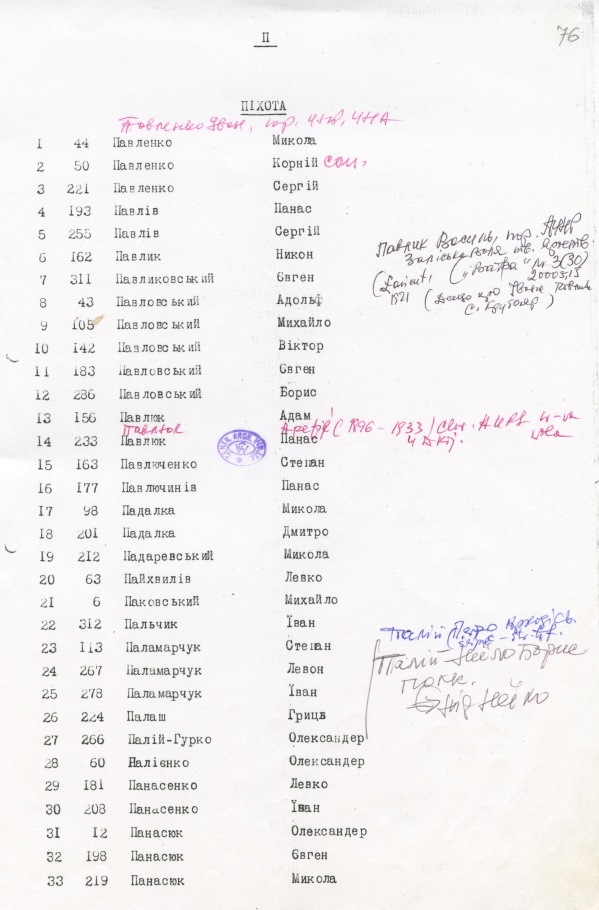 П
76
ПІХОТА
Павленко Іван,
1 44 Павленко Микола
2 50 Павленко Корній
3 221 Павленко Сергій
4 193 Павлів Панас
5 255 Павлів Сергій
Павлик Василь,
6 162 Павлик Никон
7 311 Павликовський Євген
8 43 Павловський Адольф
9 105 Павловський Михайло
10 142 Павловський Віктор
11 183 Павловський Євген
12 286 Павловський Борис
13 156 Павлюк Адам
Павлюк (1896-1933)
14 233 Павлюк Панас
15 163 Павлюченко Степан
16 177 Павлючинів Панас
17 98 Падалка Микола
18 201 Падалка Дмитро
19 212 Падаревський Микола
20 63 Пайхвилів Левко
21 6 Паковський Михайло
22 312 Пальчик Їван
Палій Петро
23 113 Паламарчук Степан
Палій-Нейло Борис
24 267 Паламарчук Левон
полк.
25 278 Паламарчук Їван
26 224 Палаш Гриць
27 266 Палій-Гурко Олександер
28 60 Палієнко Олександер
29 181 Панасенко Левко
30 208 Панасенко Їван
31 12 Панасюк Олександер
32 198 Панасюк Євген
33 219 Панасюк Микола